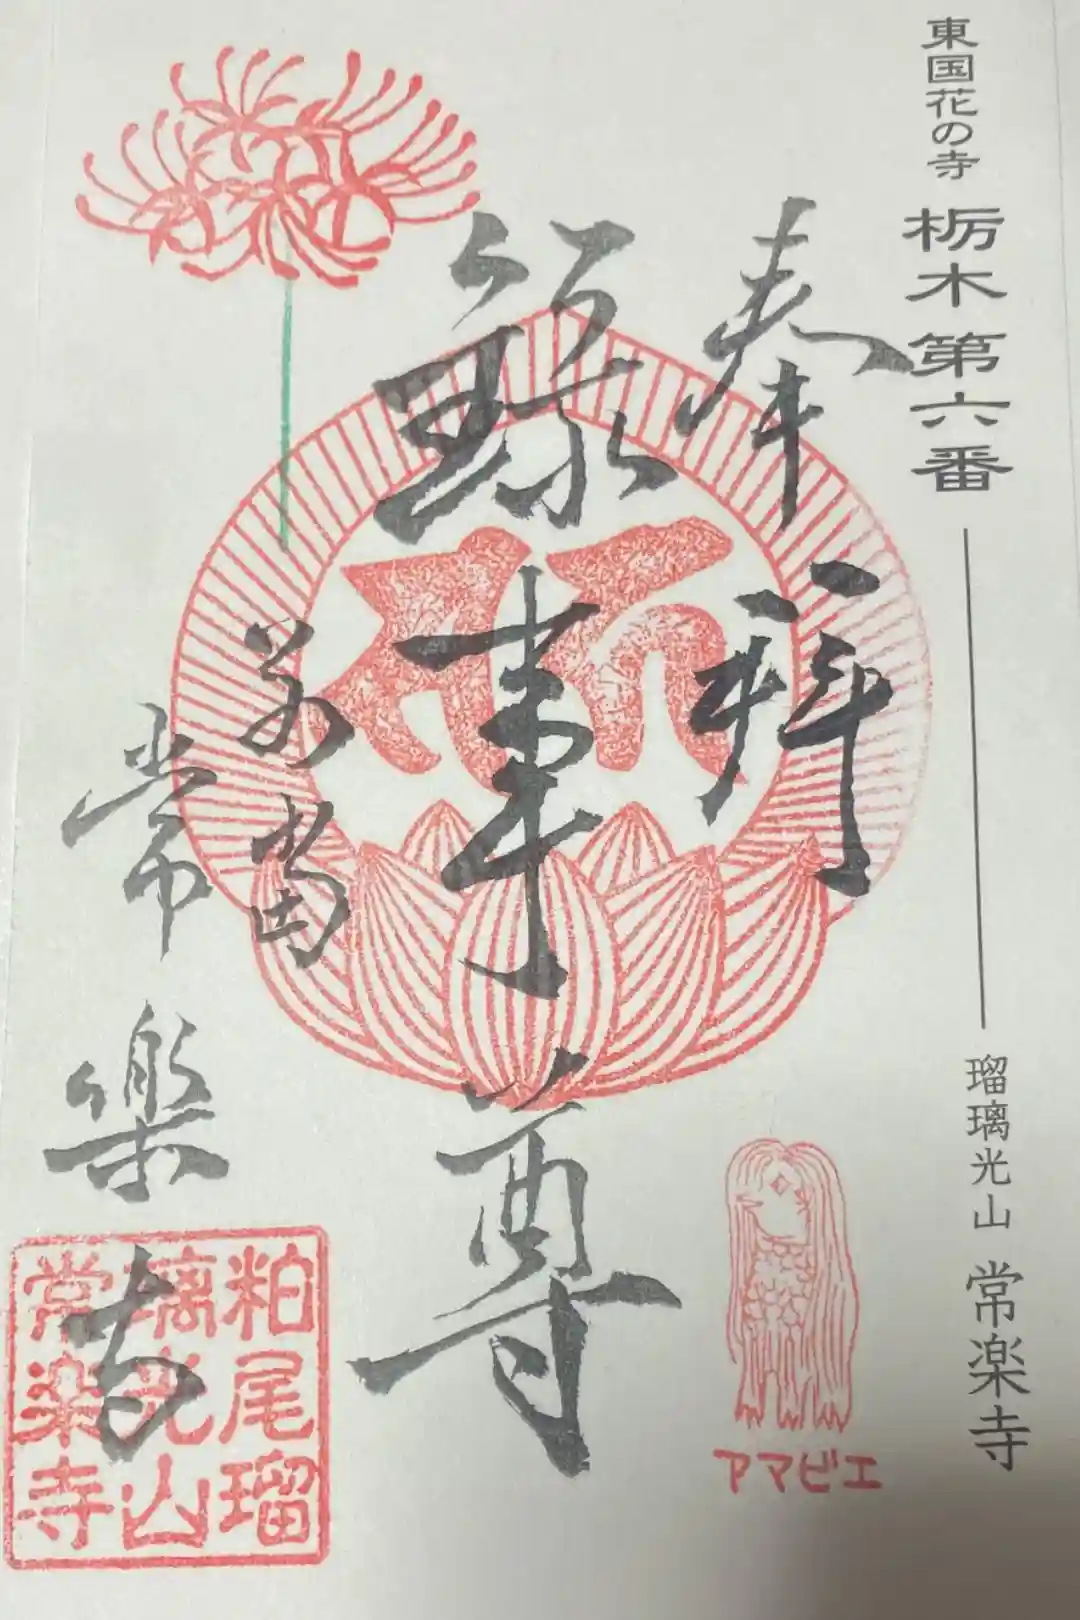 東国花の寺 栃木第六番
瑠璃光山 常楽寺
奉拝
録事尊
別當
常樂寺
アマビエ
粕尾瑠
璃光山
常楽寺